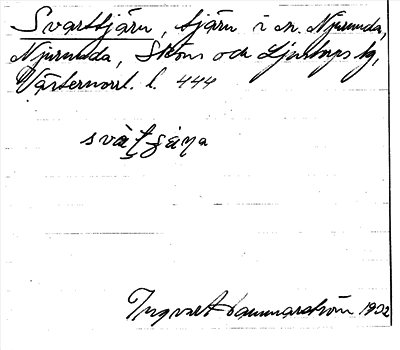 Svarttjärn, tjärn i n. Njurunda,
Njurunda, Sköns och Ljustorps tg,
Västernorrl. l. 444
Ingvar Hammarström 1932